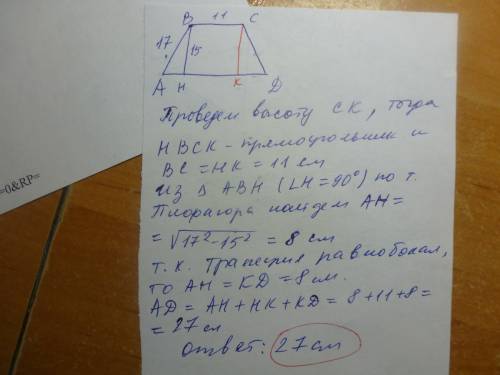 B 11 C
17 15
A H K D
Проведем высоту СК, тогда
HBCK - прямоугольник и
BC = HK = 11 см
из Δ ABH (∠H = 90°) по т.
Пифагора найдем AH =
= √17² - 15² = 8 см
т.к. трапеция равнобокая,
то AH = KD = 8 см.
AD = AH + HK + KD = 8 + 11 + 8 =
= 27 см
ответ: 27 см
=0&RP=